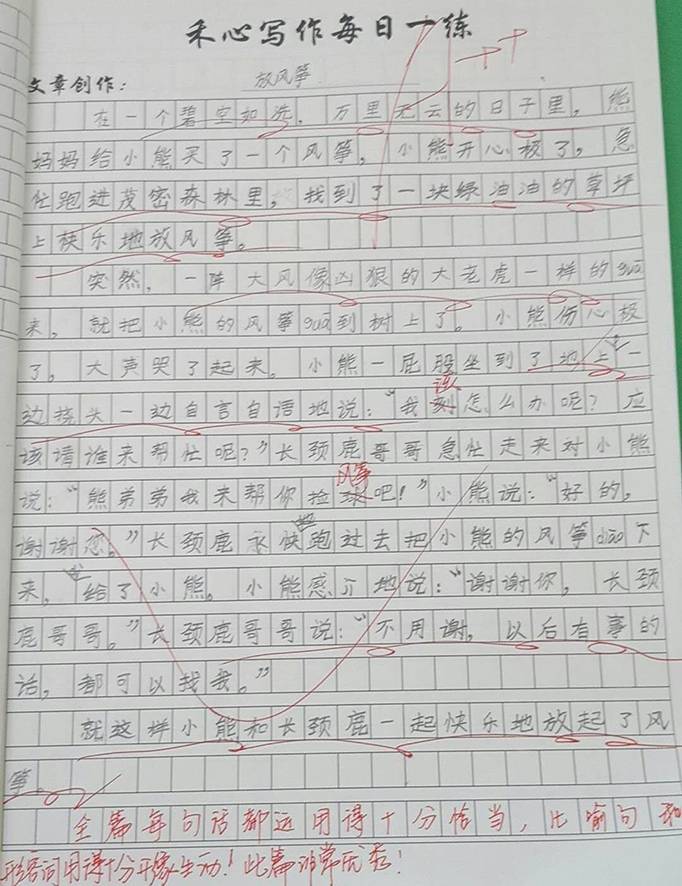 禾心写作每日一练
文章创作：
放风筝
在一个碧空如洗，万里无云的日子里，熊
妈妈给小熊买了一个风筝，小熊开心极了，急
忙跑进茂密森林里，找到了一块绿油油的草坪
上快乐地放风筝。
突然，一阵大风像凶狠的大老虎一样的guā
来，就把小熊的风筝guā到树上了。小熊伤心极
了，大声哭了起来。小熊一屁股坐到了地上，一
边挠头一边自言自语地说：“我该怎么办呢？应
该请谁来帮忙呢？”长颈鹿哥哥急忙走来对小熊
说：“熊弟弟我来帮你捡风筝吧！”小熊说：“好的，
谢谢您。”长颈鹿快跑过去把小熊的风筝diāo下
来，给了小熊。小熊感地说：“谢谢你，长颈
鹿哥哥。”长颈鹿哥哥说：“不用谢，以后有事的
话，都可以找我。”
就这样小熊和长颈鹿一起快乐地放起了风
筝。
全篇每句话都运用得十分恰当，比喻句和
形容词用得十分形象生动！此篇非常优秀！